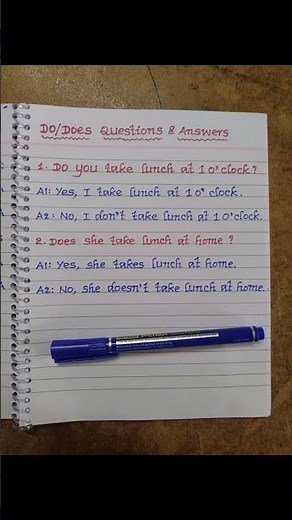 Do/Does Questions & Answers
1. Do you take lunch at 1 o'clock?
A1: Yes, I take lunch at 1 o'clock.
A2: No, I don't take lunch at 1 o'clock.
2. Does she take lunch at home?
A1: Yes, she takes lunch at home.
A2: No, she doesn't take lunch at home.